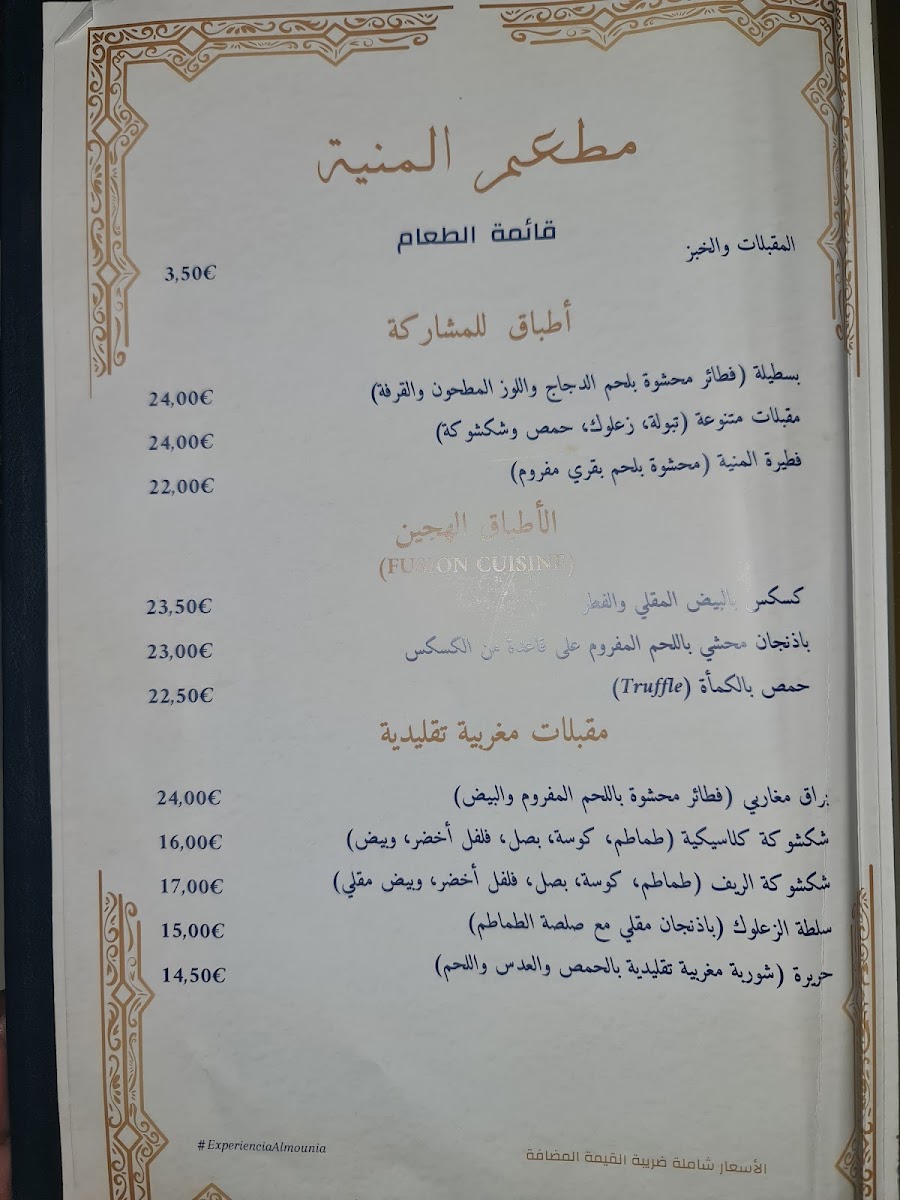 مطعم المنية
قائمة الطعام
المقبلات والخبز 3,50€
أطباق للمشاركة
بسطيلة (فطائر محشوة بلحم الدجاج واللوز المطحون والقرفة) 24,00€
مقبلات متنوعة (تبولة، زعلوك، حمص وشكشوكة) 24,00€
فطيرة المنية (محشوة بلحم بقري مفروم) 22,00€
الأطباق الهجين
(FUSION CUISINE)
كسكس بالبيض المقلي والفطر 23,50€
باذنجان محشي باللحم المفروم على قاعدة من الكسكس 23,00€
حمص بالكمأة (Truffle) 22,50€
مقبلات مغربية تقليدية
براق مغاربي (فطائر محشوة باللحم المفروم والبيض) 24,00€
شكشوكة كلاسيكية (طماطم، كوسة، بصل، فلفل أخضر، وبيض) 16,00€
شكشوكة الريف (طماطم، كوسة، بصل، فلفل أخضر، وبيض مقلي) 17,00€
سلطة الزعلوك (باذنجان مقلي مع صلصة الطماطم) 15,00€
حريرة (شوربة مغربية تقليدية بالحمص والعدس واللحم) 14,50€
#ExperienciaAlmounia
الأسعار شاملة ضريبة القيمة المضافة